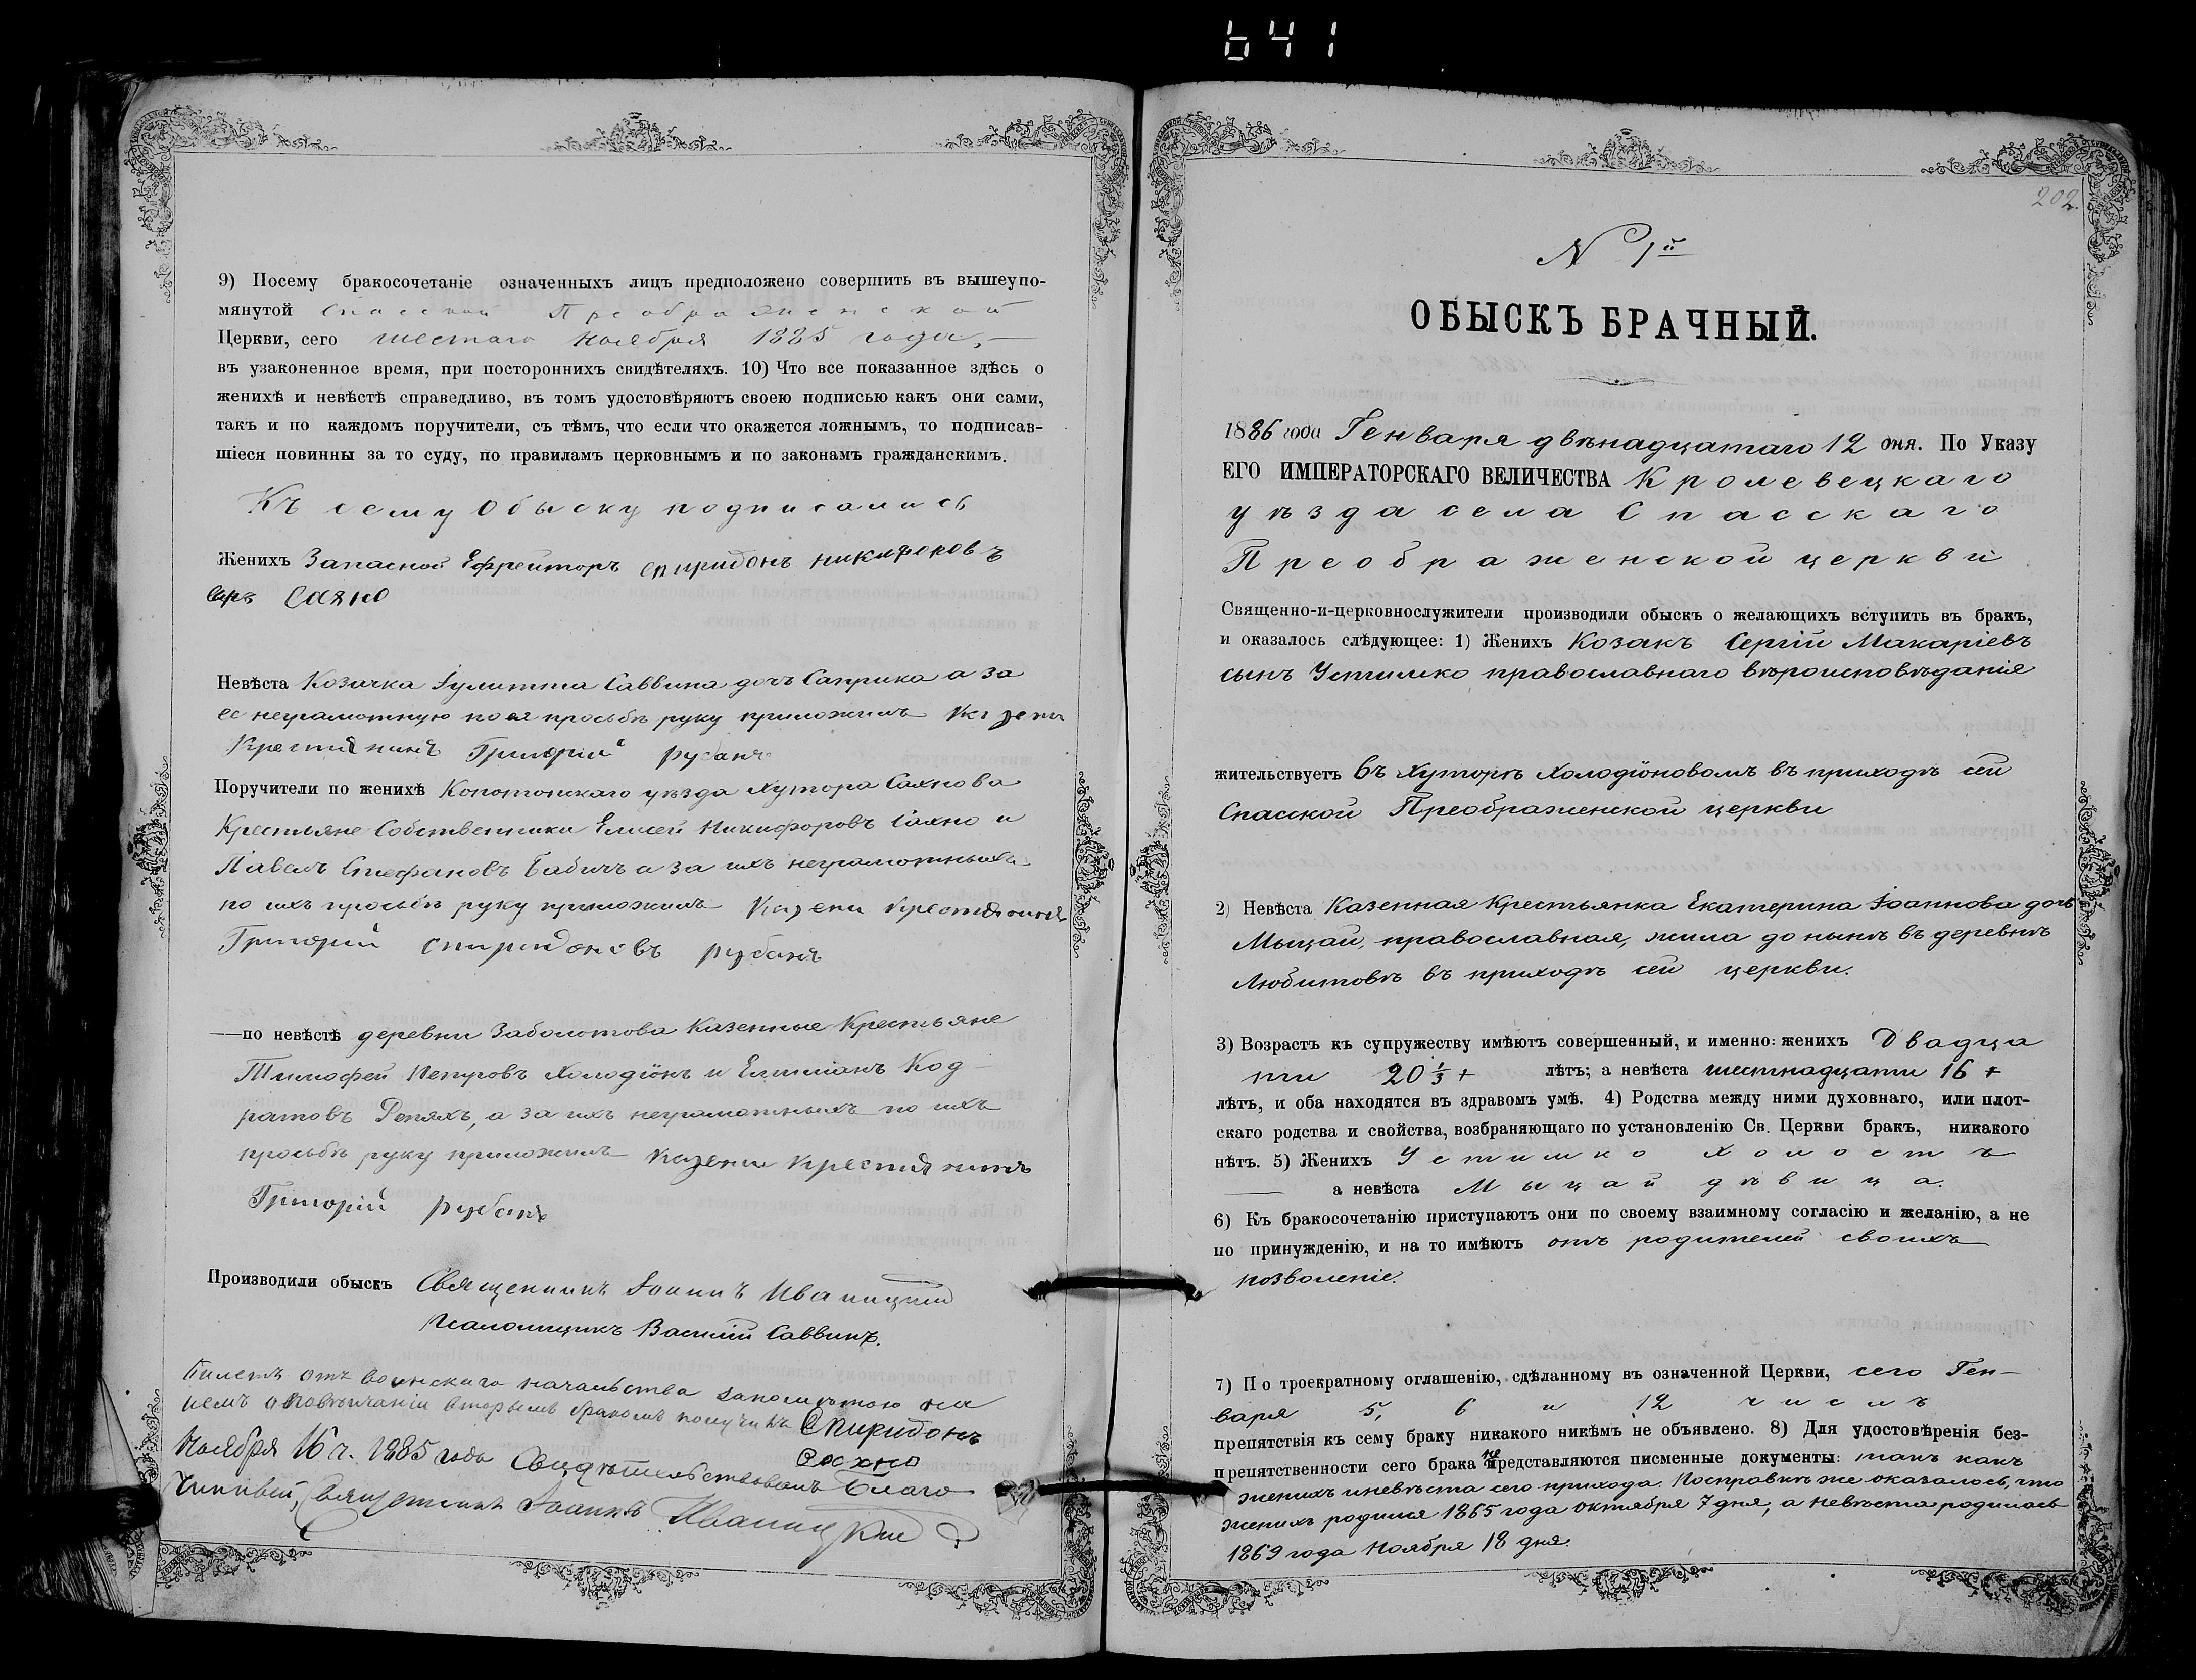 641
9) Посему бракосочетаніе означенныхъ лицъ предположено совершить въ вышеупо-
мянутой Спасской Преображенской
Церкви, сего шестаго Ноября 1885 года,
въ узаконенное время, при постороннихъ свидѣтеляхъ. 10) Что все показанное здѣсь о
женихѣ и невѣстѣ справедливо, въ томъ удостовѣряютъ своею подписью какъ они сами,
такъ и по каждомъ поручители, съ тѣмъ, что если что окажется ложнымъ, то подписав-
шіеся повинны за то суду, по правиламъ церковнымъ и по законамъ гражданскимъ.
Къ сему обыску подписались
Женихъ Запасной Ефрейторъ спиридонъ никифоровъ
Сахно
Невѣста Козачка Іулитта Саввина дочь Саприка а за
ее неграмотную по ея просьбѣ руку приложилъ Казены
Крестянинъ Григорій рубанъ
Поручители по женихѣ Конотопскаго уѣзда хутора Сахнова
Крестьяне Собственники Елисей Никифоровъ Сахно и
Павелъ Стефановъ Бабичъ а за ихъ неграмотныхъ
по ихъ просьбѣ руку приложилъ Казени крестянинъ
Григорій спиридоновъ рубанъ
—по невѣстѣ деревни Заболотова Казенные Крестьяне
Тимофей Петровъ Холодіонъ и Елпіанъ Код-
ратовъ Репяхъ, а за ихъ неграмотныхъ по ихъ
просьбѣ руку приложилъ казени крестянинъ
Григорій рубанъ
Производили обыскъ Священникъ Іоаннъ Иваницкій
Псаломщикъ Василій Саввинъ.
Билетъ отъ воинскаго начальства запомѣтою на
немъ о повѣнчаніи вторымъ бракомъ получилъ Спиридонъ
Сахно
Ноября 16 ч. 1885 года Свидѣтельствовалъ Благо
чинный, Священникъ Іоаннъ Иваницкій
202.
N 1й
ОБЫСКЪ БРАЧНЫЙ.
1886 года Генваря двѣнадцатаго 12 дня. По Указу
ЕГО ИМПЕРАТОРСКАГО ВЕЛИЧЕСТВА Кролевецкаго
уѣзда села Спасскаго
Преображенской церкви
Священно-и-церковнослужители производили обыскъ о желающихъ вступить въ бракъ,
и оказалось слѣдующее: 1) Женихъ Козакъ Сергій Макаріевъ
сынъ Устимко православнаго вѣроисповѣданія
жительствуетъ въ хуторѣ Холодіоновомъ въ приходѣ сей
Спасской Преображенской церкви
2) Невѣста Казенная Крестьянка Екатерина Іоаннова дочь
Мыцай, православная, жила до нынѣ въ деревнѣ
Любитовѣ въ приходѣ сей церкви.
3) Возрастъ къ супружеству имѣютъ совершенный, и именно: женихъ Двадца
ти 20 1/3 + лѣтъ; а невѣста шестнадцати 16 +
лѣтъ, и оба находятся въ здравомъ умѣ. 4) Родства между ними духовнаго, или плот-
скаго родства и свойства, возбраняющаго по установленію Св. Церкви бракъ, никакого
нѣтъ. 5) Женихъ Устимко холостъ
— а невѣста Мыцай дѣвица.
6) Къ бракосочетанію приступаютъ они по своему взаимному согласію и желанію, а не
по принужденію, и на то имѣютъ отъ родителей своихъ
позволеніе.
7) По троекратному оглашенію, сдѣланному въ означенной Церкви, сего Ген-
варя 5, 6 и 12 числъ
препятствія къ сему браку никакого никѣмъ не объявлено. 8) Для удостовѣренія без-
препятственности сего брака не представляются писменные документы: такъ какъ
женихъ и невѣста сего прихода. По справкѣ же оказалось, что
женихъ родился 1865 года октября 7 дня, а невѣста родилась
1869 года Ноября 18 дня.